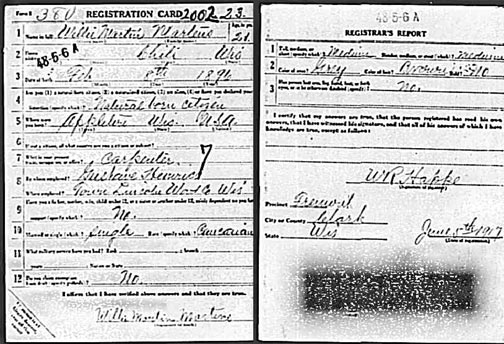 Form 1 380 REGISTRATION CARD 2002 23
1 Name in full Willie Martin Martens 21
48-5-6 A
2 Home address Chili Wis
3 Date of birth Feb 8th 1896
4 Are you (1) a natural-born citizen, (2) a naturalized citizen, (3) an alien, (4) or have you declared your
intention (specify which)? Natural born citizen
5 Where were you born? Appleton Wis. USA
6 If not a citizen, of what country are you a citizen or subject?
7 What is your present Carpenter 7
8 By whom employed? Gustave
Where employed? Town Lincoln Wood Co Wis
9 Have you a father, mother, wife, child under 12, or a sister or brother under 12, solely dependent on you for
support (specify which)? No.
10 Married or single (which)? Single Race (specify which)? Caucasian
11 What military service have you had? Rank ; branch
years ; Nation or State
12 Do you claim exemption from draft (specify grounds)? No.
I affirm that I have verified above answers and that they are true.
Willie Martin Martens
48-5-6 A
REGISTRAR'S REPORT
1 Tall, medium, or short (specify which)? Medium Slender, medium, or stout (which)? Medium
2 Color of eyes? Grey Color of hair? Brown Bald? No
3 Has person lost arm, leg, hand, foot, or both eyes, or is he otherwise disabled (specify)? No.
I certify that my answers are true, that the person registered has read his own
answers, that I have witnessed his signature, and that all of his answers of which I have
knowledge are true, except as follows:
W R Happe
Precinct Fremont
City or County Clark
State Wis June 5th 1917